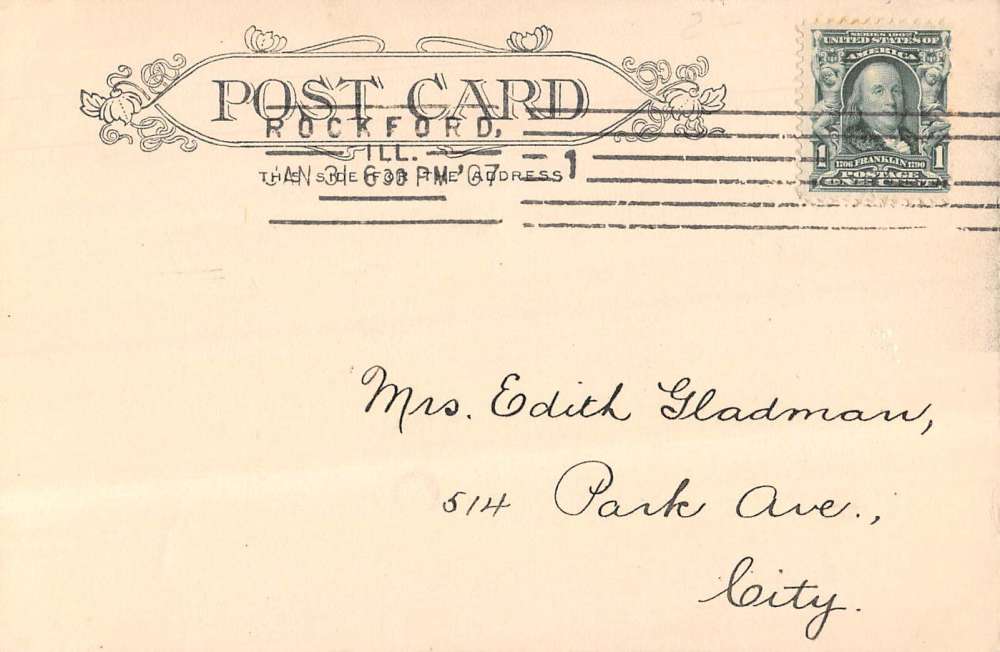 POST CARD
ROCKFORD,
ILL.
JAN 31 630 PM '07
1
THIS SIDE FOR THE ADDRESS
SERIES 1902
UNITED STATES OF
AMERICA
1 1706 FRANKLIN 1790 1
POSTAGE
ONE CENT
Mrs. Edith Gladman,
514 Park Ave.,
City.